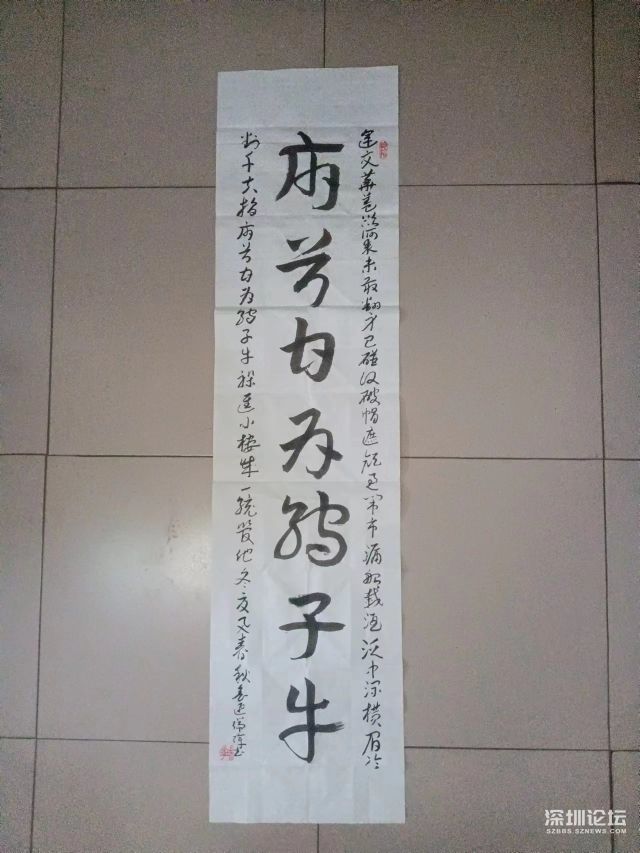 运交華蓋欲何求未敢翻身已碰头破帽遮颜过闹市漏船载酒泛中流横眉冷
俯首甘为孺子牛
对千夫指俯首甘为孺子牛躲進小楼成一统管他冬夏又春秋
深圳论坛
SZBBS.SZNEWS.COM